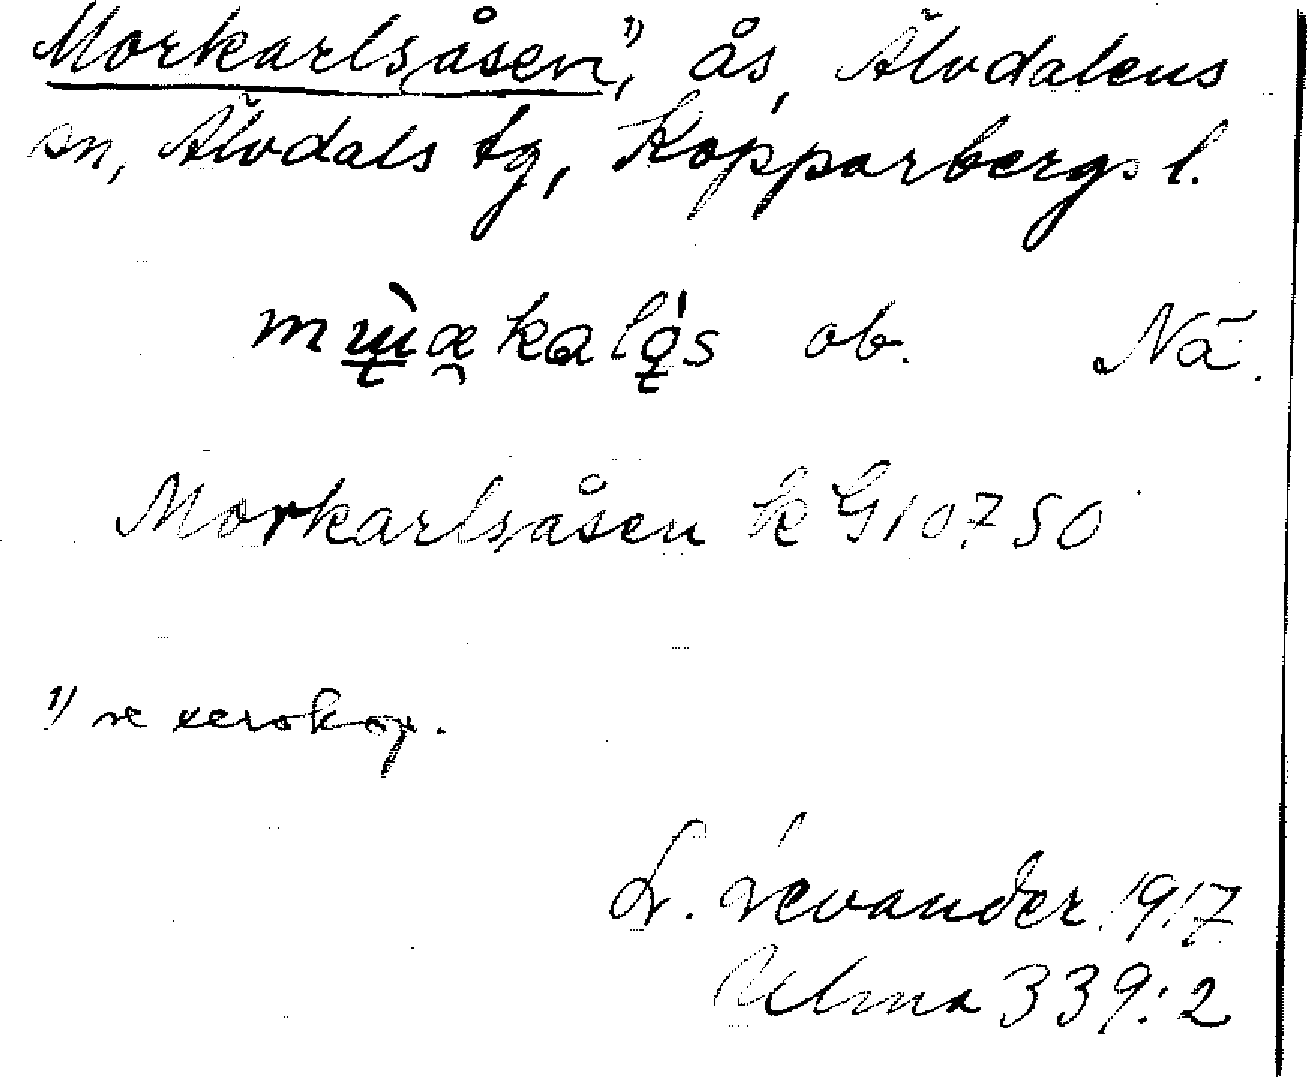 Morkarlsåsen¹⁾, ås, Älvdalens
sn, Älvdals tg, Kopparbergs l.
ob. Nä.
Morkarlsåsen k G10750
¹⁾ se xerokop.
L. Levander 1917
Ulma 339:2